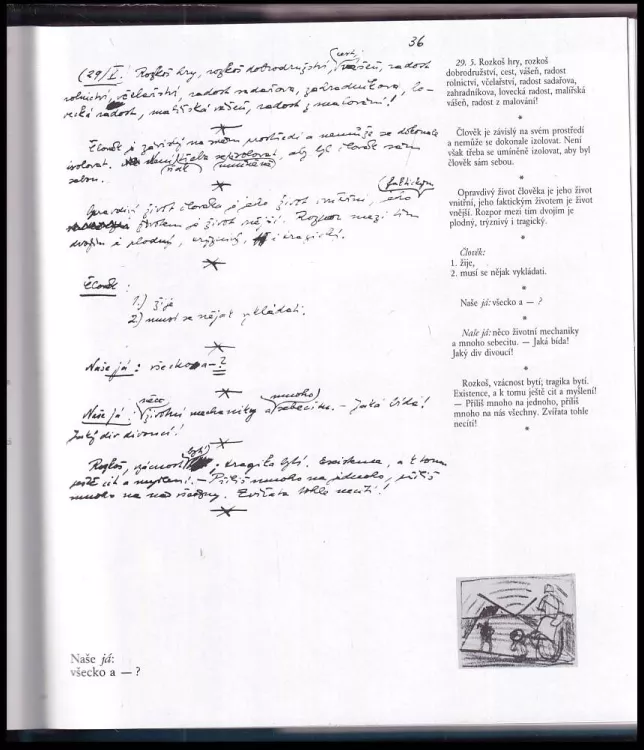 36
(29/V. Rozkoš hry, rozkoš dobrodružství, cest, vášeň, radost
rolnictví, včelařství, radost sadařova, zahradníkova, lo-
vecká radost, malířská vášeň, radost z malování!
Člověk je závislý na svém prostředí a nemůže se dokonale
izolovat. není však třeba se izolovat umíněně, aby byl člověk sám
sebou.
Opravdivý život člověka je jeho život vnitřní, jeho faktickým
životem je život vnější. Rozpor mezi tím
dvojím je plodný, trýznivý, i tragický.
Člověk:
1.) žije
2.) musí se nějak vykládati.
Naše já: všecko a – ?
Naše já: něco životní mechaniky a mnoho sebecitu. – Jaká bída!
Jaký div divoucí!
Rozkoš, vzácnost bytí; tragika bytí. Existence, a k tomu
ještě cit a myšlení! – Příliš mnoho na jednoho, příliš
mnoho na nás všechny. Zvířata tohle necítí!
29. 5. Rozkoš hry, rozkoš
dobrodružství, cest, vášeň, radost
rolnictví, včelařství, radost sadařova,
zahradníkova, lovecká radost, malířská
vášeň, radost z malování!
*
Člověk je závislý na svém prostředí
a nemůže se dokonale izolovat. Není
však třeba se umíněně izolovat, aby byl
člověk sám sebou.
*
Opravdivý život člověka je jeho život
vnitřní, jeho faktickým životem je život
vnější. Rozpor mezi tím dvojím je
plodný, trýznivý i tragický.
*
Člověk:
1. žije,
2. musí se nějak vykládati.
*
Naše já: všecko a — ?
*
Naše já: něco životní mechaniky
a mnoho sebecitu. — Jaká bída!
Jaký div divoucí!
*
Rozkoš, vzácnost bytí; tragika bytí.
Existence, a k tomu ještě cit a myšlení!
— Příliš mnoho na jednoho, příliš
mnoho na nás všechny. Zvířata tohle
necítí!
*
Naše já:
všecko a — ?